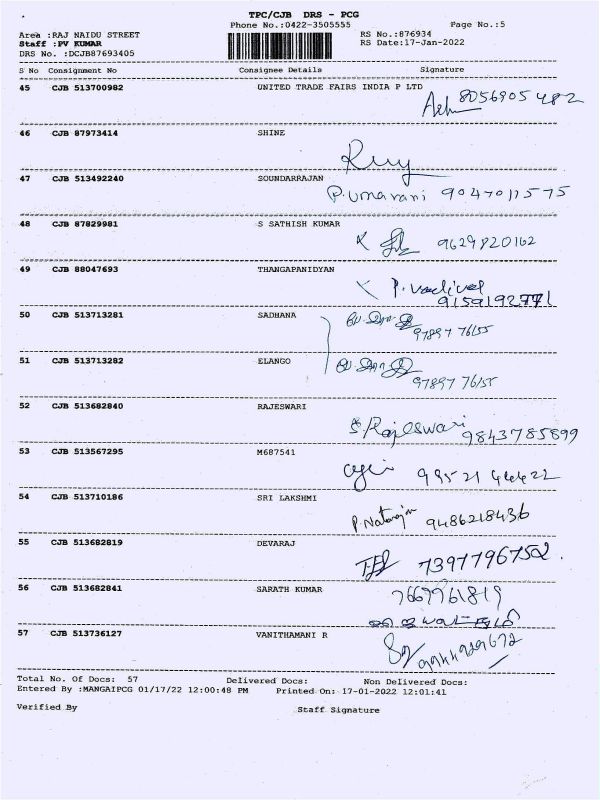 TPC/CJB DRS - PCG
Phone No.:0422-3505555 Page No.:5
Area :RAJ NAIDU STREET RS No.:876934
Staff :PV KUMAR RS Date:17-Jan-2022
DRS No. :DCJB87693405
S No Consignment No Consignee Details Signature
45 CJB 513700982 UNITED TRADE FAIRS INDIA P LTD
8056905482
46 CJB 87973414 SHINE
47 CJB 513492240 SOUNDARRAJAN
P.Umarani 9047011575
48 CJB 87829981 S SATHISH KUMAR
9629820162
49 CJB 88047693 THANGAPANIDYAN
P. Vadivel
9159192771
50 CJB 513713281 SADHANA
97897 76155
51 CJB 513713282 ELANGO
97897 76155
52 CJB 513682840 RAJESWARI
S. Rajeswari 9843785899
53 CJB 513567295 M687541
99521 44422
54 CJB 513710186 SRI LAKSHMI
P. Natarajan 9486218436
55 CJB 513682819 DEVARAJ
7397796752.
56 CJB 513682841 SARATH KUMAR
7667961819
57 CJB 513736127 VANITHAMANI R
9944929672
Total No. Of Docs: 57 Delivered Docs: Non Delivered Docs:
Entered By :MANGAIPCG 01/17/22 12:00:48 PM Printed On: 17-01-2022 12:01:41
Verified By Staff Signature